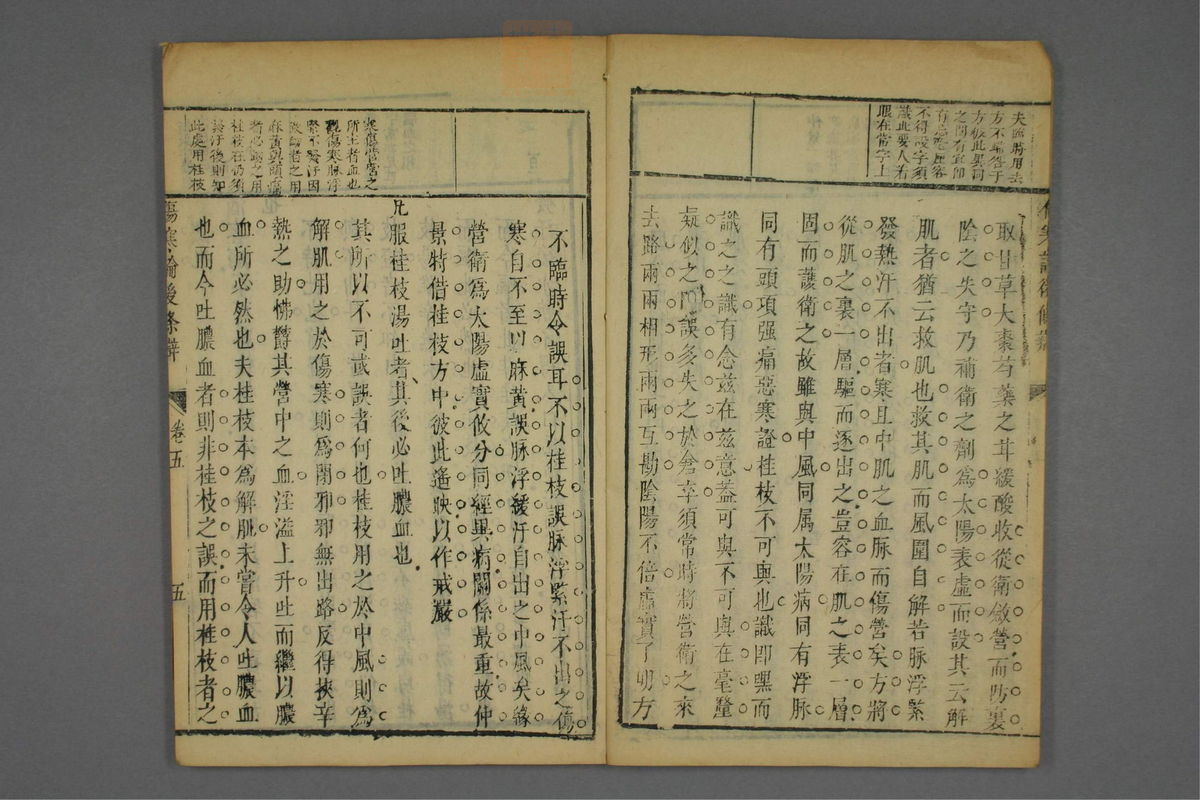 夫臨時用去
方不難咎于
之間有宜
不得設字須
識此要人着
眼在常字上
取甘草大棗芍藥之甘緩酸收從衛斂營而防裏
陰之失守乃補衛之劑爲太陽表虛而設其云解
肌者猶云救肌也救其肌而風圍自解若脉浮緊
發熱汗不出者寒且中肌之血脉而傷營矣方將
從肌之裏一層驅而逐出之豈容在肌之表一層
固而護衛之故雖與中風同属太陽病同有浮脉
同有頭項强痛惡寒證桂枝不可與也識即嘿而
識之之識有念兹在兹意葢可與不可與在毫釐
疑似之間誤多失之於倉卒須常時將營衛之來
去路兩兩相形兩兩互勘陰陽不倍虛實了明方
寒傷營營之
所主者血也
觀傷寒脉浮
緊不發汗因
致衄者之用
麻黃與頭痛
者必衄之用
桂枝在仍須
發汗後則知
此處用桂枝
不臨時令誤耳不以桂枝誤脉浮緊汗不出之傷
寒自不至以麻黃誤脉浮緩汗自出之中風矣緣
營衛爲太陽虛實攸分同經異病關係最重故仲
景特借桂枝方中彼此遙映以作戒嚴
凡服桂枝湯吐者其後必吐膿血也
其所以不可或誤者何也桂枝用之於中風則爲
解肌用之於傷寒則爲閉邪邪無出路反得挾辛
熱之助怫欝其營中之血淫溢上升吐而繼以膿
血所必然也夫桂枝本爲解肌未嘗令人吐膿血
也而今吐膿血者則非桂枝之誤而用桂枝者之
傷寒論後條辨
卷五
五